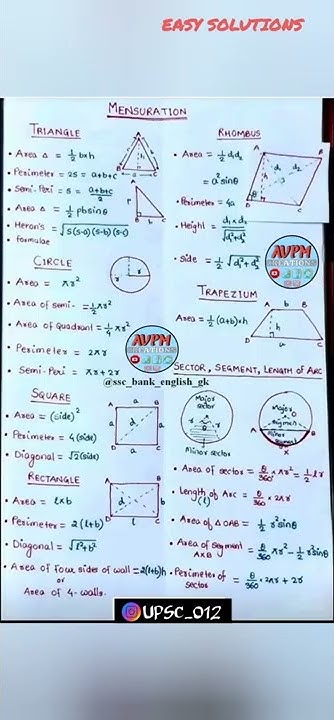 EASY SOLUTIONS
MENSURATION
TRIANGLE
• Area Δ = 1/2 b×h
• Perimeter = 2S = a+b+c
• Semi-Peri = S = a+b+c/2
• Area Δ = 1/2 pbsinθ
• Heron's formulae = √S(S-a)(S-b)(S-c)
CIRCLE
• Area = πr²
• Area of semi- = 1/2 πr²
• Area of quadrant = 1/4 πr²
• Perimeter = 2πr
• Semi-Peri = πr + 2r
@ssc_bank_english_gk
SQUARE
• Area = (side)²
• Perimeter = 4(side)
• Diagonal = √2(side)
RECTANGLE
• Area = l×b
• Perimeter = 2(l+b)
• Diagonal = √l²+b²
• Area of four sides of wall = 2(l+b)h
or
Area of 4-walls.
RHOMBUS
• Area = 1/2 d₁d₂
= a²sinθ
• Perimeter = 4a
• Height = d₁×d₂/√d₁²+d₂²
• Side = 1/2 √d₁²+d₂²
AVPM
CREATIONS
TRAPEZIUM
Area = 1/2 (a+b)×h
AVPM
CREATIONS
SECTOR, SEGMENT, LENGTH OF ARC
Major sector
Minor sector
Major segment
Minor segment
• Area of sector = θ/360° πr² = 1/2 lr
• Length of Arc (l) = θ/360° × 2πr
• Area of Δ OAB = 1/2 r²sinθ
• Area of segment AXB = θ/360° πr² - 1/2 r²sinθ
• Perimeter of sector = θ/360 · 2πr + 2r
UPSC_012